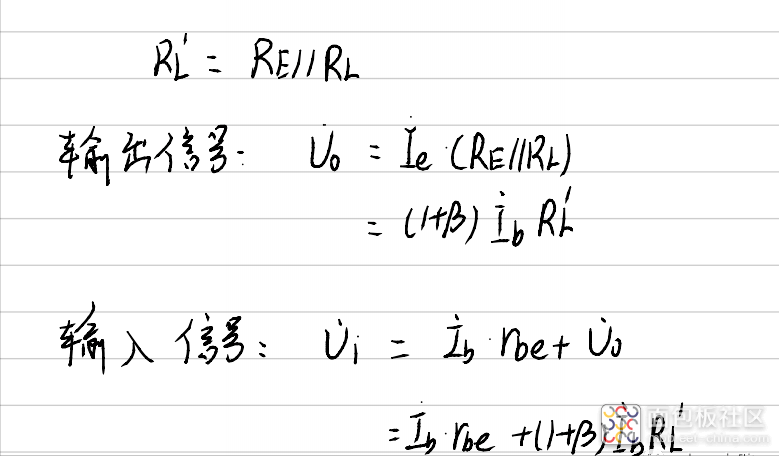 R'L = RE//RL
输出信号: U̇o = İe (RE//RL)
= (1+β) İb R'L
输入信号: U̇i = İb·rbe + U̇o
= İb·rbe + (1+β) İb R'L
面包板社区
mbb.eet-china.com